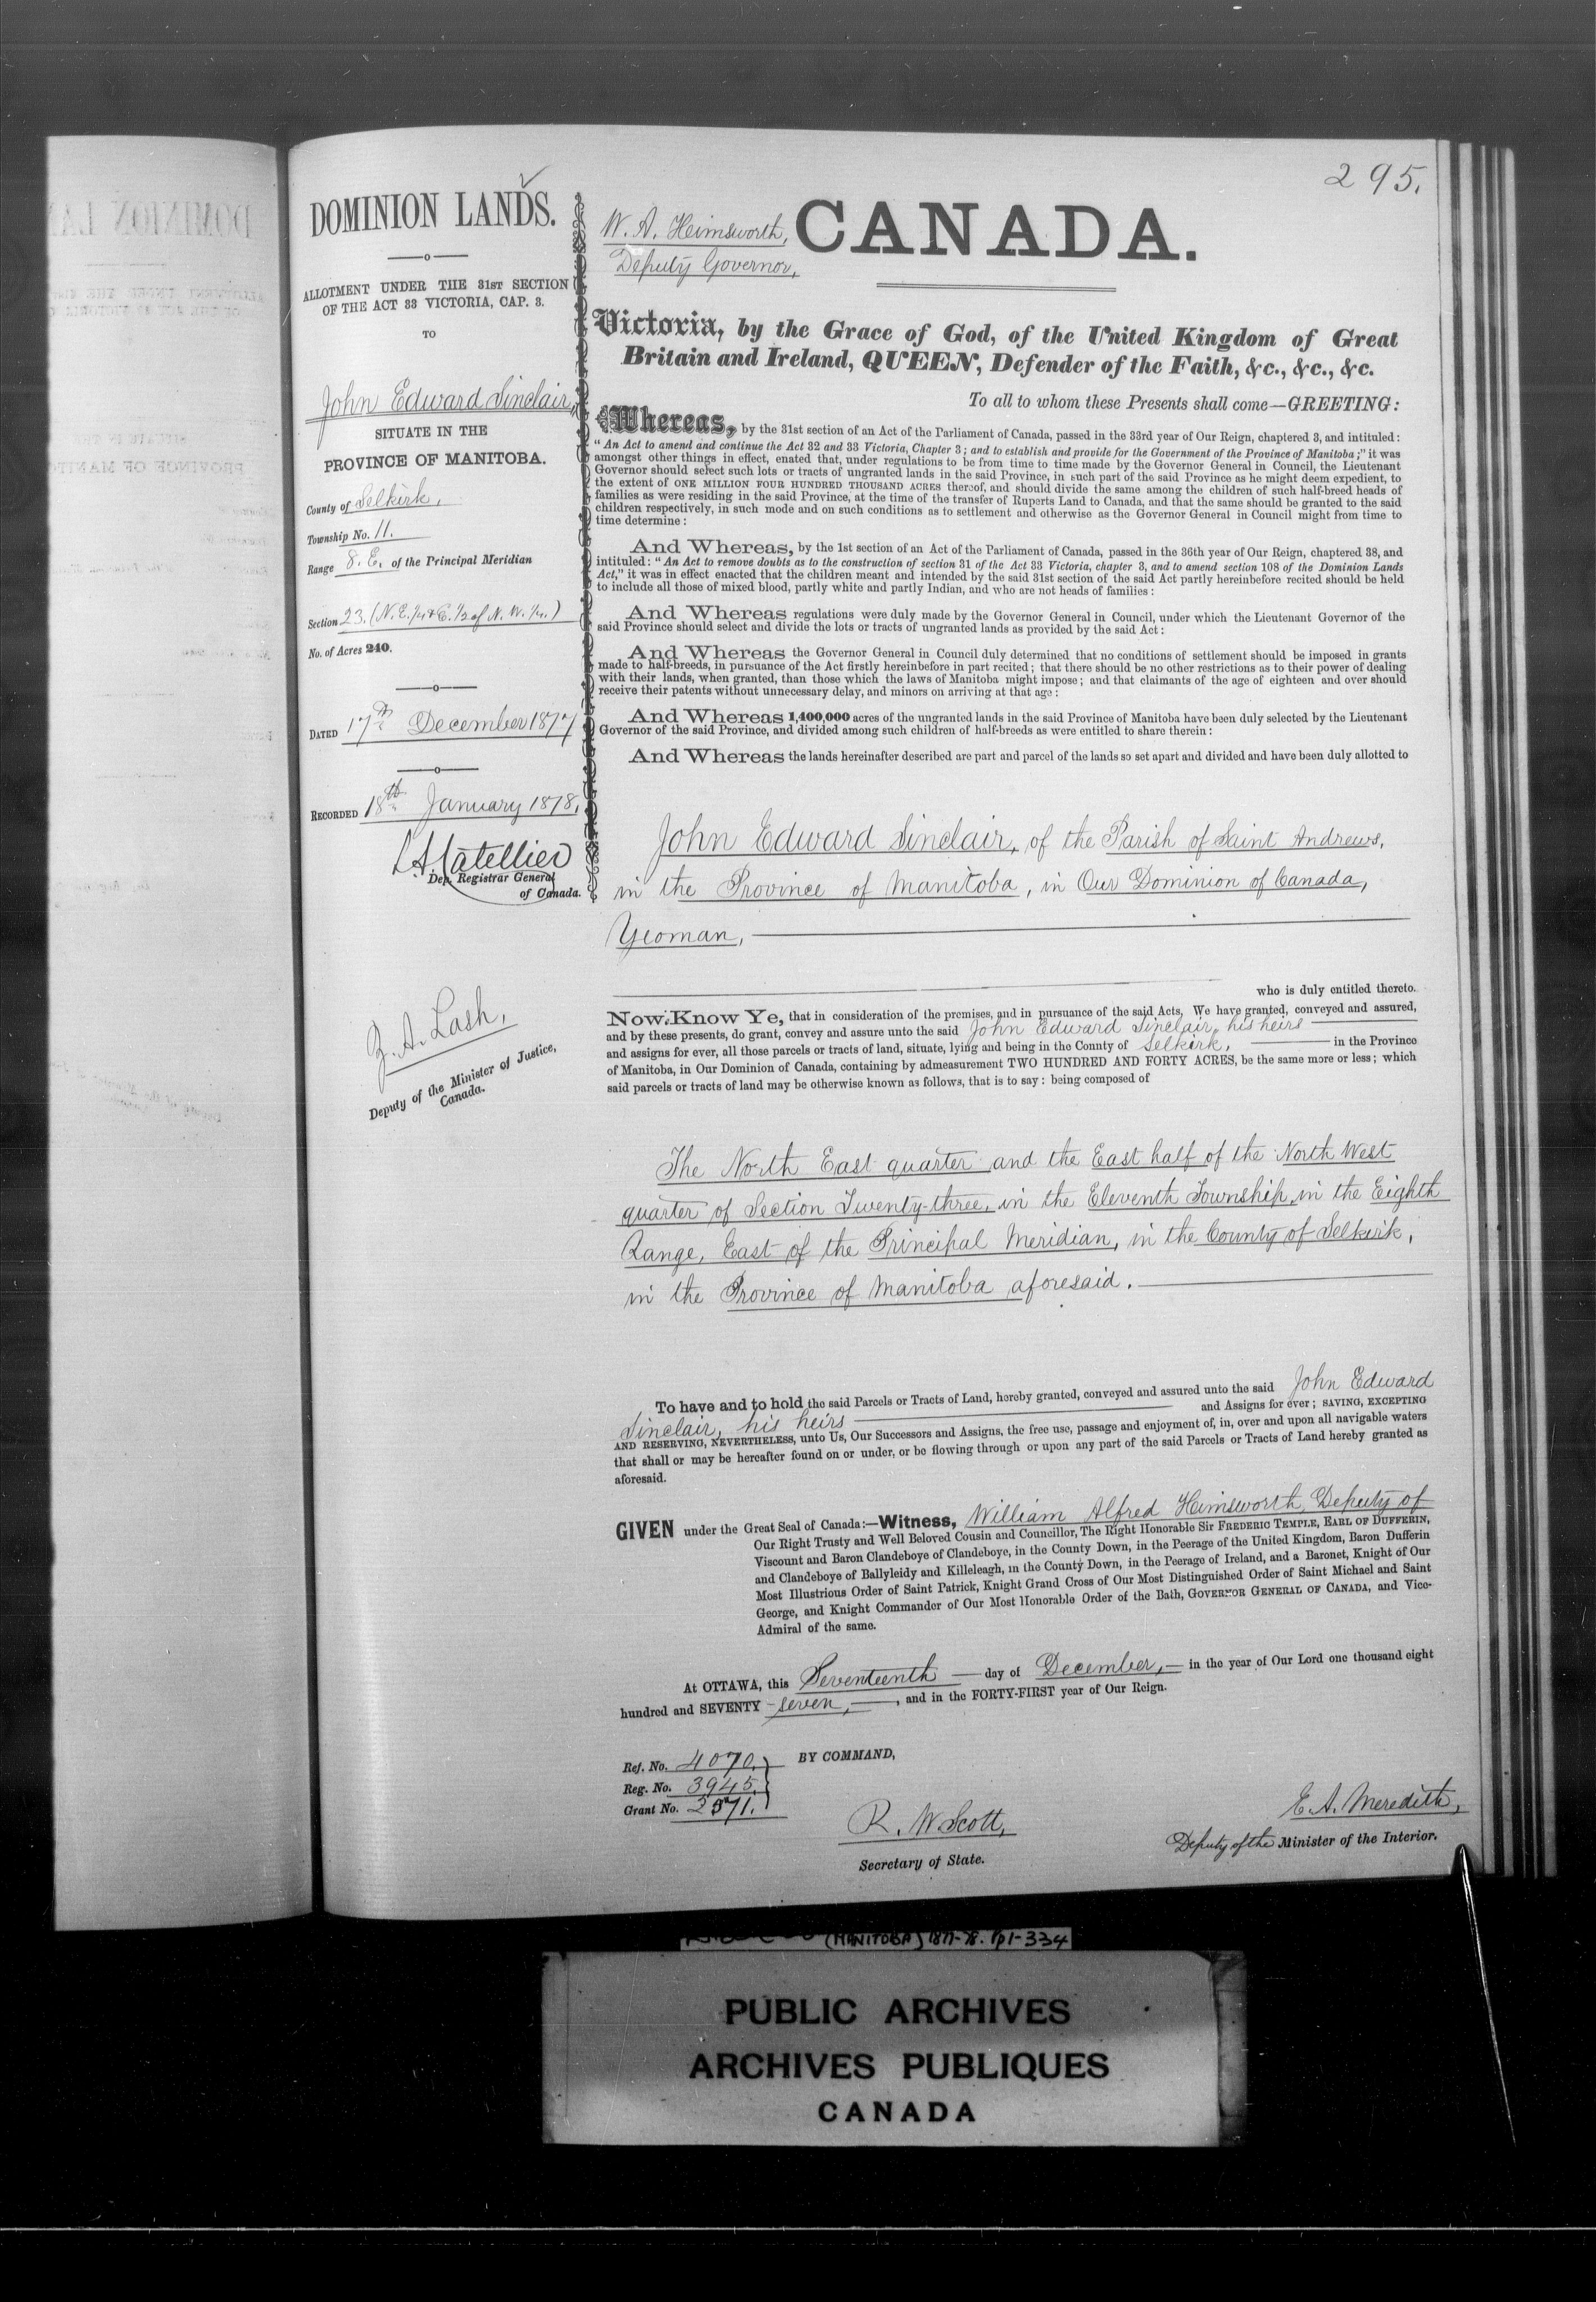 295.
DOMINION LANDS.
ALLOTMENT UNDER THE 31ST SECTION
OF THE ACT 33 VICTORIA, CAP. 3.
TO
John Edward Sinclair,
SITUATE IN THE
PROVINCE OF MANITOBA.
County of Selkirk,
Township No. 11.
Range 8. E. of the Principal Meridian
Section 23. (N. E. 1/4 & E. 1/2 of N. W. 1/4.)
No. of Acres 240.
DATED 17th December 1877
RECORDED 18th January 1878,
Dep. Registrar General
of Canada.
Z. A. Lash,
Deputy of the Minister of Justice,
Canada.
W. A. Himsworth,
Deputy Governor,
CANADA.
Victoria, by the Grace of God, of the United Kingdom of Great
Britain and Ireland, QUEEN, Defender of the Faith, &c., &c., &c.
To all to whom these Presents shall come—GREETING:
Whereas, by the 31st section of an Act of the Parliament of Canada, passed in the 33rd year of Our Reign, chaptered 3, and intituled:
"An Act to amend and continue the Act 32 and 33 Victoria, Chapter 3; and to establish and provide for the Government of the Province of Manitoba;" it was
amongst other things in effect, enated that, under regulations to be from time to time made by the Governor General in Council, the Lieutenant
Governor should select such lots or tracts of ungranted lands in the said Province, in such part of the said Province as he might deem expedient, to
the extent of ONE MILLION FOUR HUNDRED THOUSAND ACRES thereof, and should divide the same among the children of such half-breed heads of
families as were residing in the said Province, at the time of the transfer of Ruperts Land to Canada, and that the same should be granted to the said
children respectively, in such mode and on such conditions as to settlement and otherwise as the Governor General in Council might from time to
time determine:
And Whereas, by the 1st section of an Act of the Parliament of Canada, passed in the 36th year of Our Reign, chaptered 38, and
intituled: "An Act to remove doubts as to the construction of section 31 of the Act 33 Victoria, chapter 3, and to amend section 108 of the Dominion Lands
Act," it was in effect enacted that the children meant and intended by the said 31st section of the said Act partly hereinbefore recited should be held
to include all those of mixed blood, partly white and partly Indian, and who are not heads of families:
And Whereas regulations were duly made by the Governor General in Council, under which the Lieutenant Governor of the
said Province should select and divide the lots or tracts of ungranted lands as provided by the said Act:
And Whereas the Governor General in Council duly determined that no conditions of settlement should be imposed in grants
made to half-breeds, in pursuance of the Act firstly hereinbefore in part recited; that there should be no other restrictions as to their power of dealing
with their lands, when granted, than those which the laws of Manitoba might impose; and that claimants of the age of eighteen and over should
receive their patents without unnecessary delay, and minors on arriving at that age:
And Whereas 1,400,000 acres of the ungranted lands in the said Province of Manitoba have been duly selected by the Lieutenant
Governor of the said Province, and divided among such children of half-breeds as were entitled to share therein:
And Whereas the lands hereinafter described are part and parcel of the lands so set apart and divided and have been duly allotted to
John Edward Sinclair, of the Parish of Saint Andrews,
in the Province of Manitoba, in Our Dominion of Canada,
Yeoman,
who is duly entitled thereto.
Now Know Ye, that in consideration of the premises, and in pursuance of the said Acts, We have granted, conveyed and assured,
and by these presents, do grant, convey and assure unto the said John Edward Sinclair, his heirs
and assigns for ever, all those parcels or tracts of land, situate, lying and being in the County of Selkirk, in the Province
of Manitoba, in Our Dominion of Canada, containing by admeasurement TWO HUNDRED AND FORTY ACRES, be the same more or less; which
said parcels or tracts of land may be otherwise known as follows, that is to say: being composed of
The North East quarter and the East half of the North West
quarter of Section Twenty-three, in the Eleventh Township, in the Eighth
Range, East of the Principal Meridian, in the County of Selkirk,
in the Province of Manitoba aforesaid.
To have and to hold the said Parcels or Tracts of Land, hereby granted, conveyed and assured unto the said John Edward
Sinclair, his heirs and Assigns for ever; SAVING, EXCEPTING
AND RESERVING, NEVERTHELESS, unto Us, Our Successors and Assigns, the free use, passage and enjoyment of, in, over and upon all navigable waters
that shall or may be hereafter found on or under, or be flowing through or upon any part of the said Parcels or Tracts of Land hereby granted as
aforesaid.
GIVEN under the Great Seal of Canada:—Witness, William Alfred Himsworth, Deputy of
Our Right Trusty and Well Beloved Cousin and Councillor, The Right Honorable Sir FREDERIC TEMPLE, EARL OF DUFFERIN,
Viscount and Baron Clandeboye of Clandeboye, in the County Down, in the Peerage of the United Kingdom, Baron Dufferin
and Clandeboye of Ballyleidy and Killeleagh, in the County Down, in the Peerage of Ireland, and a Baronet, Knight of Our
Most Illustrious Order of Saint Patrick, Knight Grand Cross of Our Most Distinguished Order of Saint Michael and Saint
George, and Knight Commander of Our Most Honorable Order of the Bath, GOVERNOR GENERAL OF CANADA, and Vice-
Admiral of the same.
At OTTAWA, this Seventeenth day of December, in the year of Our Lord one thousand eight
hundred and SEVENTY-seven, and in the FORTY-FIRST year of Our Reign.
Ref. No. 4070.
Reg. No. 3945.
Grant No. 2571.
BY COMMAND,
R. W. Scott,
Secretary of State.
E. A. Meredith,
Deputy of the Minister of the Interior.
(MANITOBA) 1877-78. Pp1-334
PUBLIC ARCHIVES
ARCHIVES PUBLIQUES
CANADA